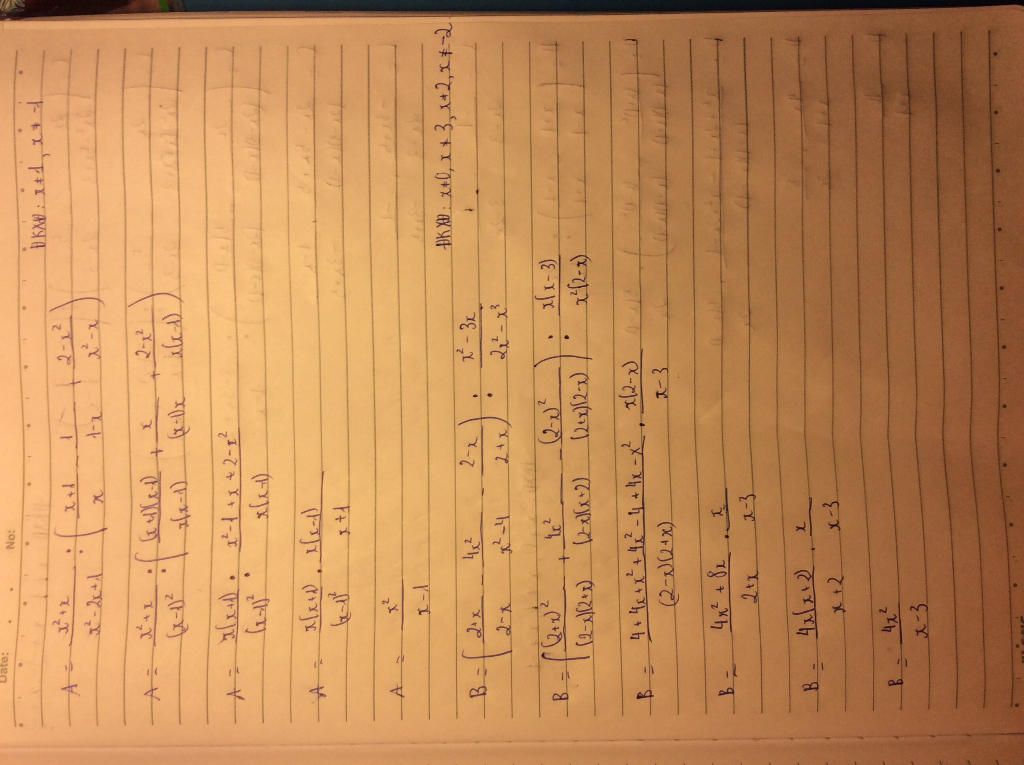 Date: No:
ĐKXĐ: x ≠ 1, x ≠ -1
A = \frac{x²+x}{x²-2x+1} : ( \frac{x+1}{x} - \frac{1}{1-x} + \frac{2-x²}{x²-x} )
A = \frac{x²+x}{(x-1)²} : ( \frac{(x+1)(x-1)}{x(x-1)} + \frac{x}{(x-1)x} + \frac{2-x²}{x(x-1)} )
A = \frac{x(x+1)}{(x-1)²} : \frac{x²-1+x+2-x²}{x(x-1)}
A = \frac{x(x+1)}{(x-1)²} . \frac{x(x-1)}{x+1}
A = \frac{x²}{x-1}
ĐKXĐ: x≠0, x≠3, x≠2, x≠-2
B = ( \frac{2+x}{2-x} - \frac{4x²}{x²-4} - \frac{2-x}{2+x} ) : \frac{x²-3x}{2x²-x³}
B = ( \frac{(2+x)²}{(2-x)(2+x)} + \frac{4x²}{(2-x)(x+2)} - \frac{(2-x)²}{(2+x)(2-x)} ) : \frac{x(x-3)}{x²(2-x)}
B = \frac{4+4x+x²+4x²-4+4x-x²}{(2-x)(2+x)} . \frac{x(2-x)}{x-3}
B = \frac{4x²+8x}{2+x} . \frac{x}{x-3}
B = \frac{4x(x+2)}{x+2} . \frac{x}{x-3}
B = \frac{4x²}{x-3}